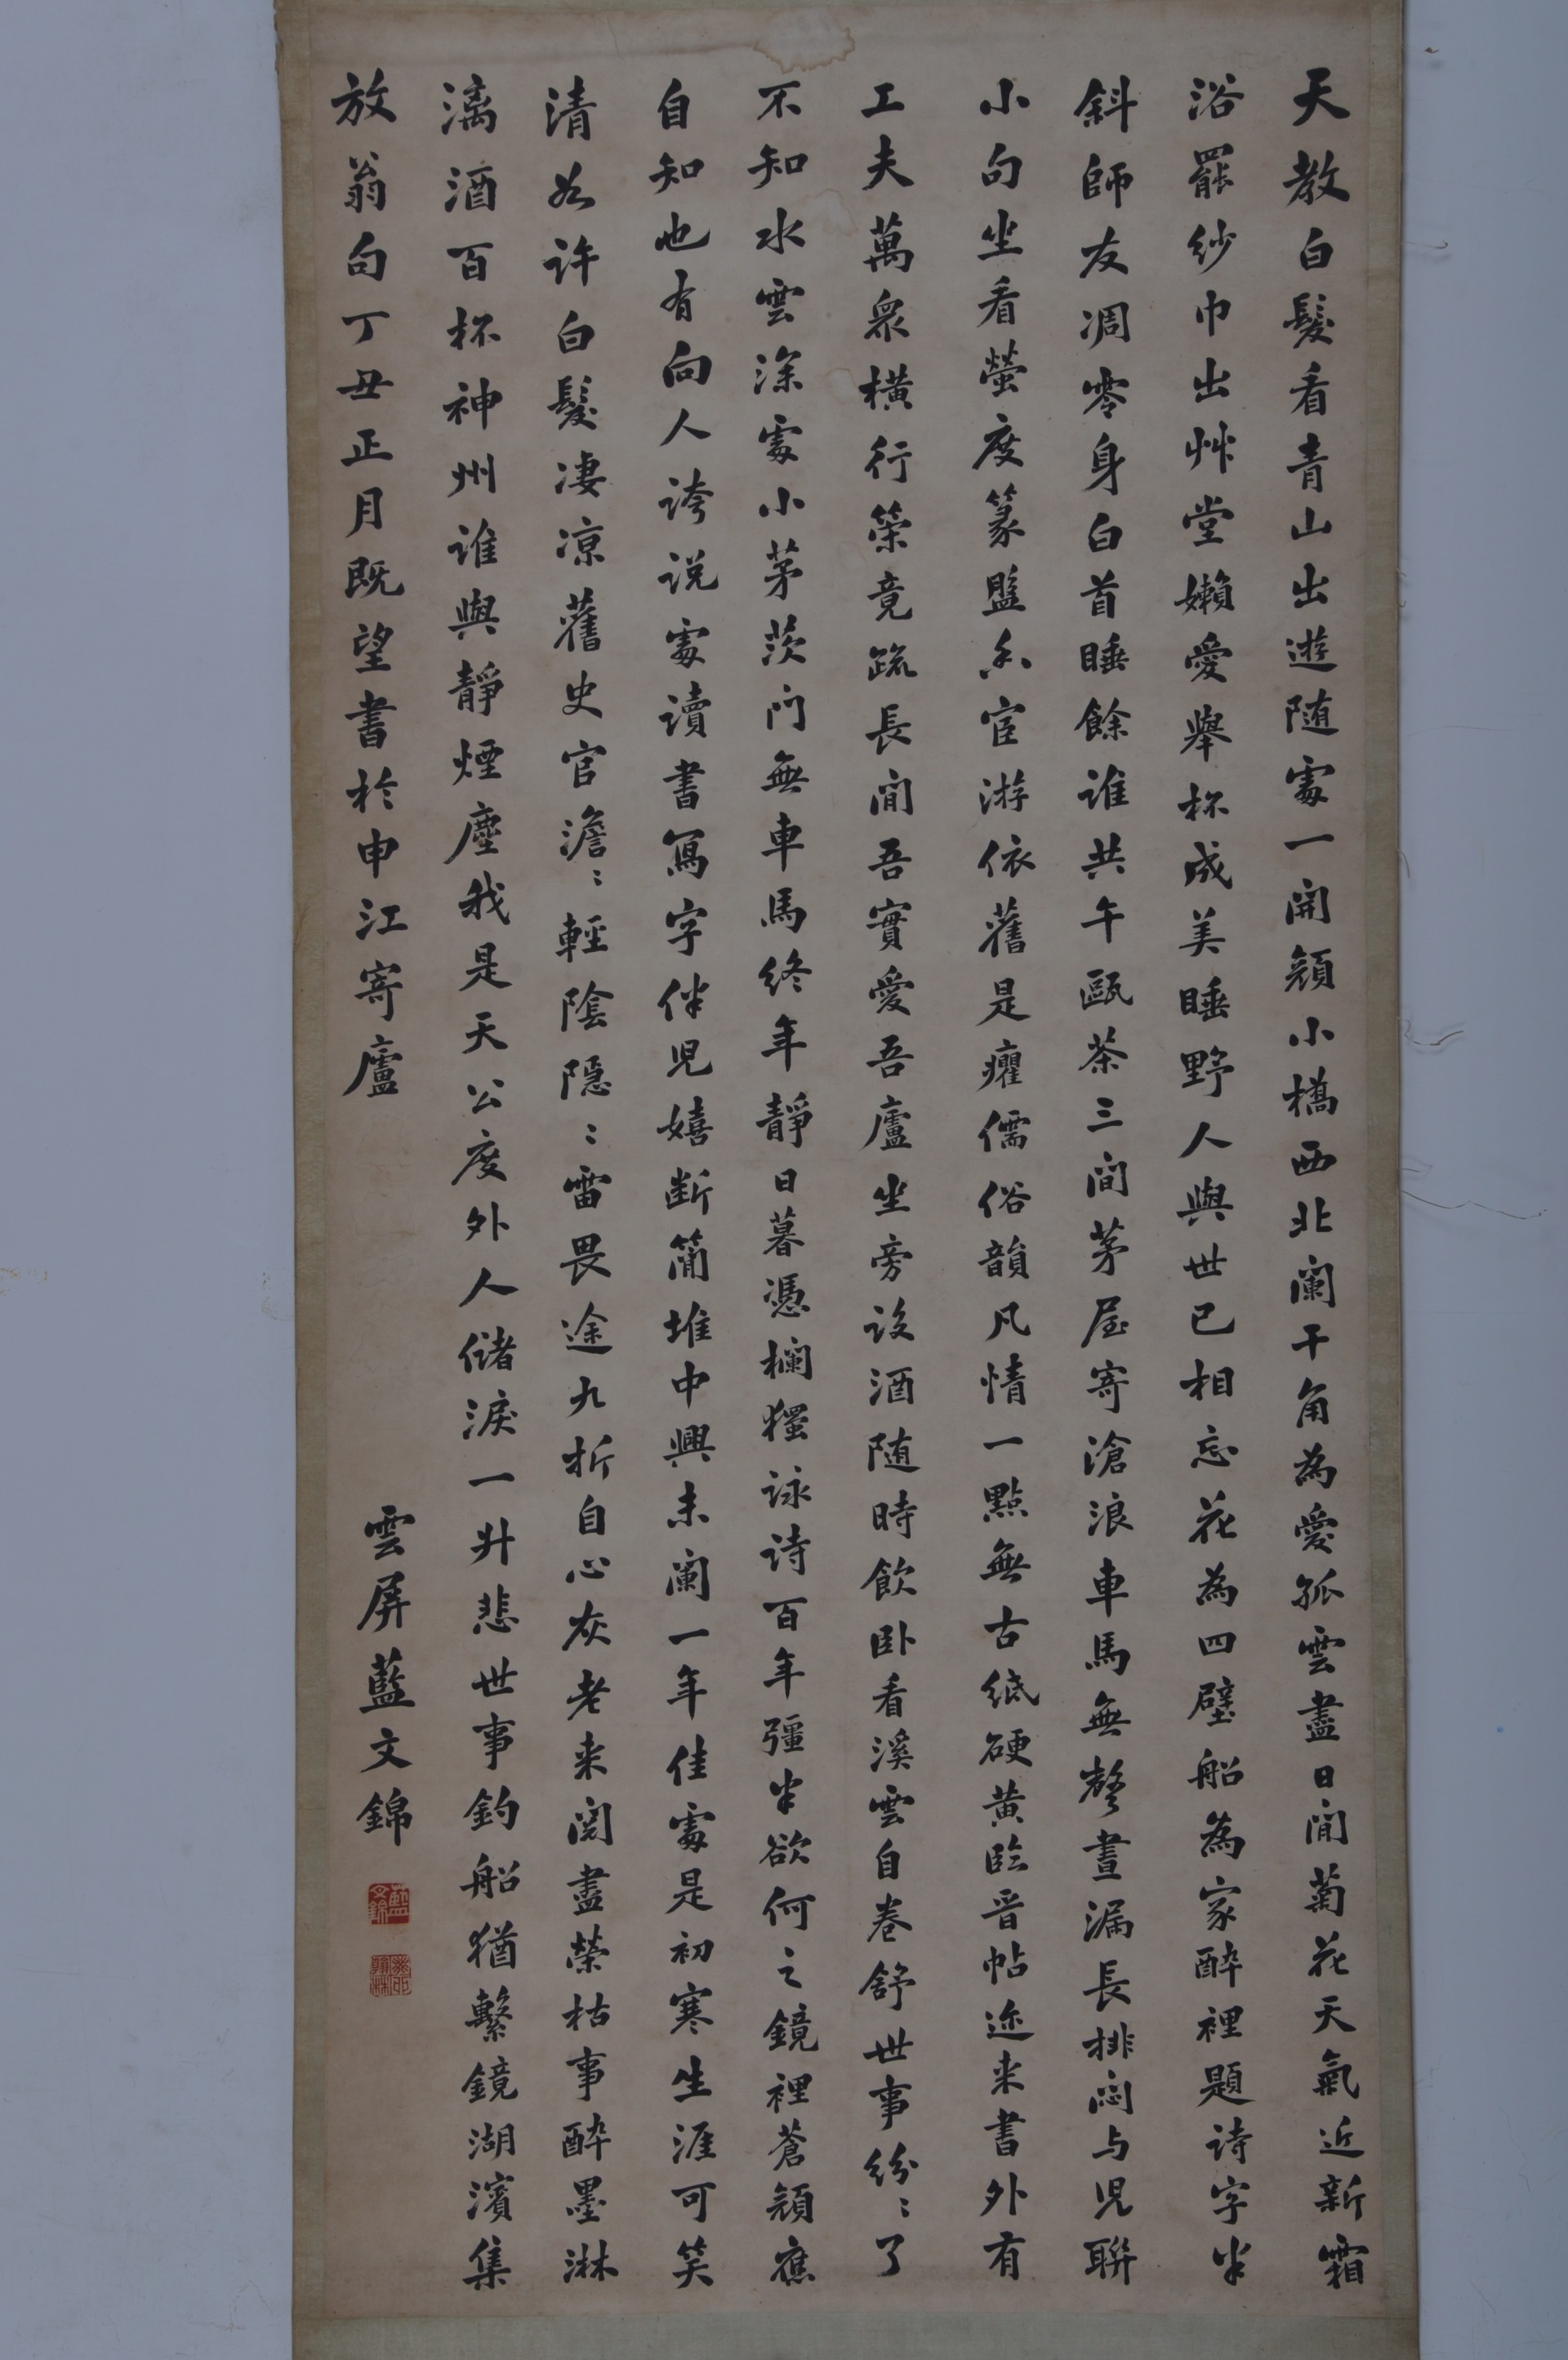 天教白髮看青山出遊随處一開顏小橋西北闌干角為愛孤雲盡日閒菊花天氣近新霜
浴罷紗巾出艸堂嬾愛舉杯成美睡野人與世已相忘花為四壁船為家醉裡題詩字半
斜師友凋零身白首睡餘誰共午甌茶三間茅屋寄滄浪車馬無聲晝漏長排悶与児聯
小句坐看螢度篆盤香宦游依舊是癯儒俗韻凡情一點無古紙硬黃臨晉帖迩来書外有
工夫萬衆橫行策竟疏長閒吾實愛吾廬坐旁設酒随時飲卧看溪雲自卷舒世事紛〻了
不知水雲深處小茅茨門無車馬終年靜日暮憑欄獨詠詩百年彊半欲何之鏡裡蒼顏憔
自知也有向人誇説處讀書寫字伴児嬉断簡堆中興未闌一年佳處是初寒生涯可笑
清如許白髮凄凉舊史官澹〻輕陰隱〻雷畏途九折自心灰老来閲盡榮枯事醉墨淋
漓酒百杯神州誰與靜煙塵我是天公度外人儲淚一升悲世事釣船猶繫鏡湖濱集
放翁句丁丑正月既望書於申江寄廬
雲屏藍文錦
藍文錦